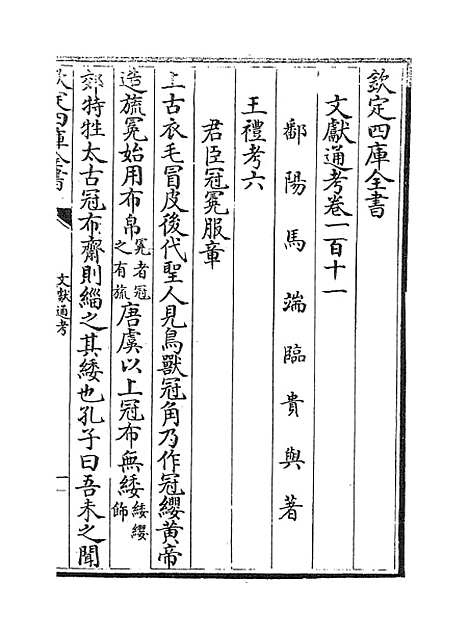 欽定四庫全書
文獻通考卷一百十一
鄱陽馬端臨貴與著
王禮考六
君臣冠冕服章
上古衣毛冒皮後代聖人見鳥獸冠角乃作冠纓黃帝
造旒冕始用布帛冕者冠之有旒唐虞以上冠布無緌緌纓飾
郊特牲太古冠布齊則緇之其緌也孔子曰吾未之聞
欽定四庫全書
文獻通考
一